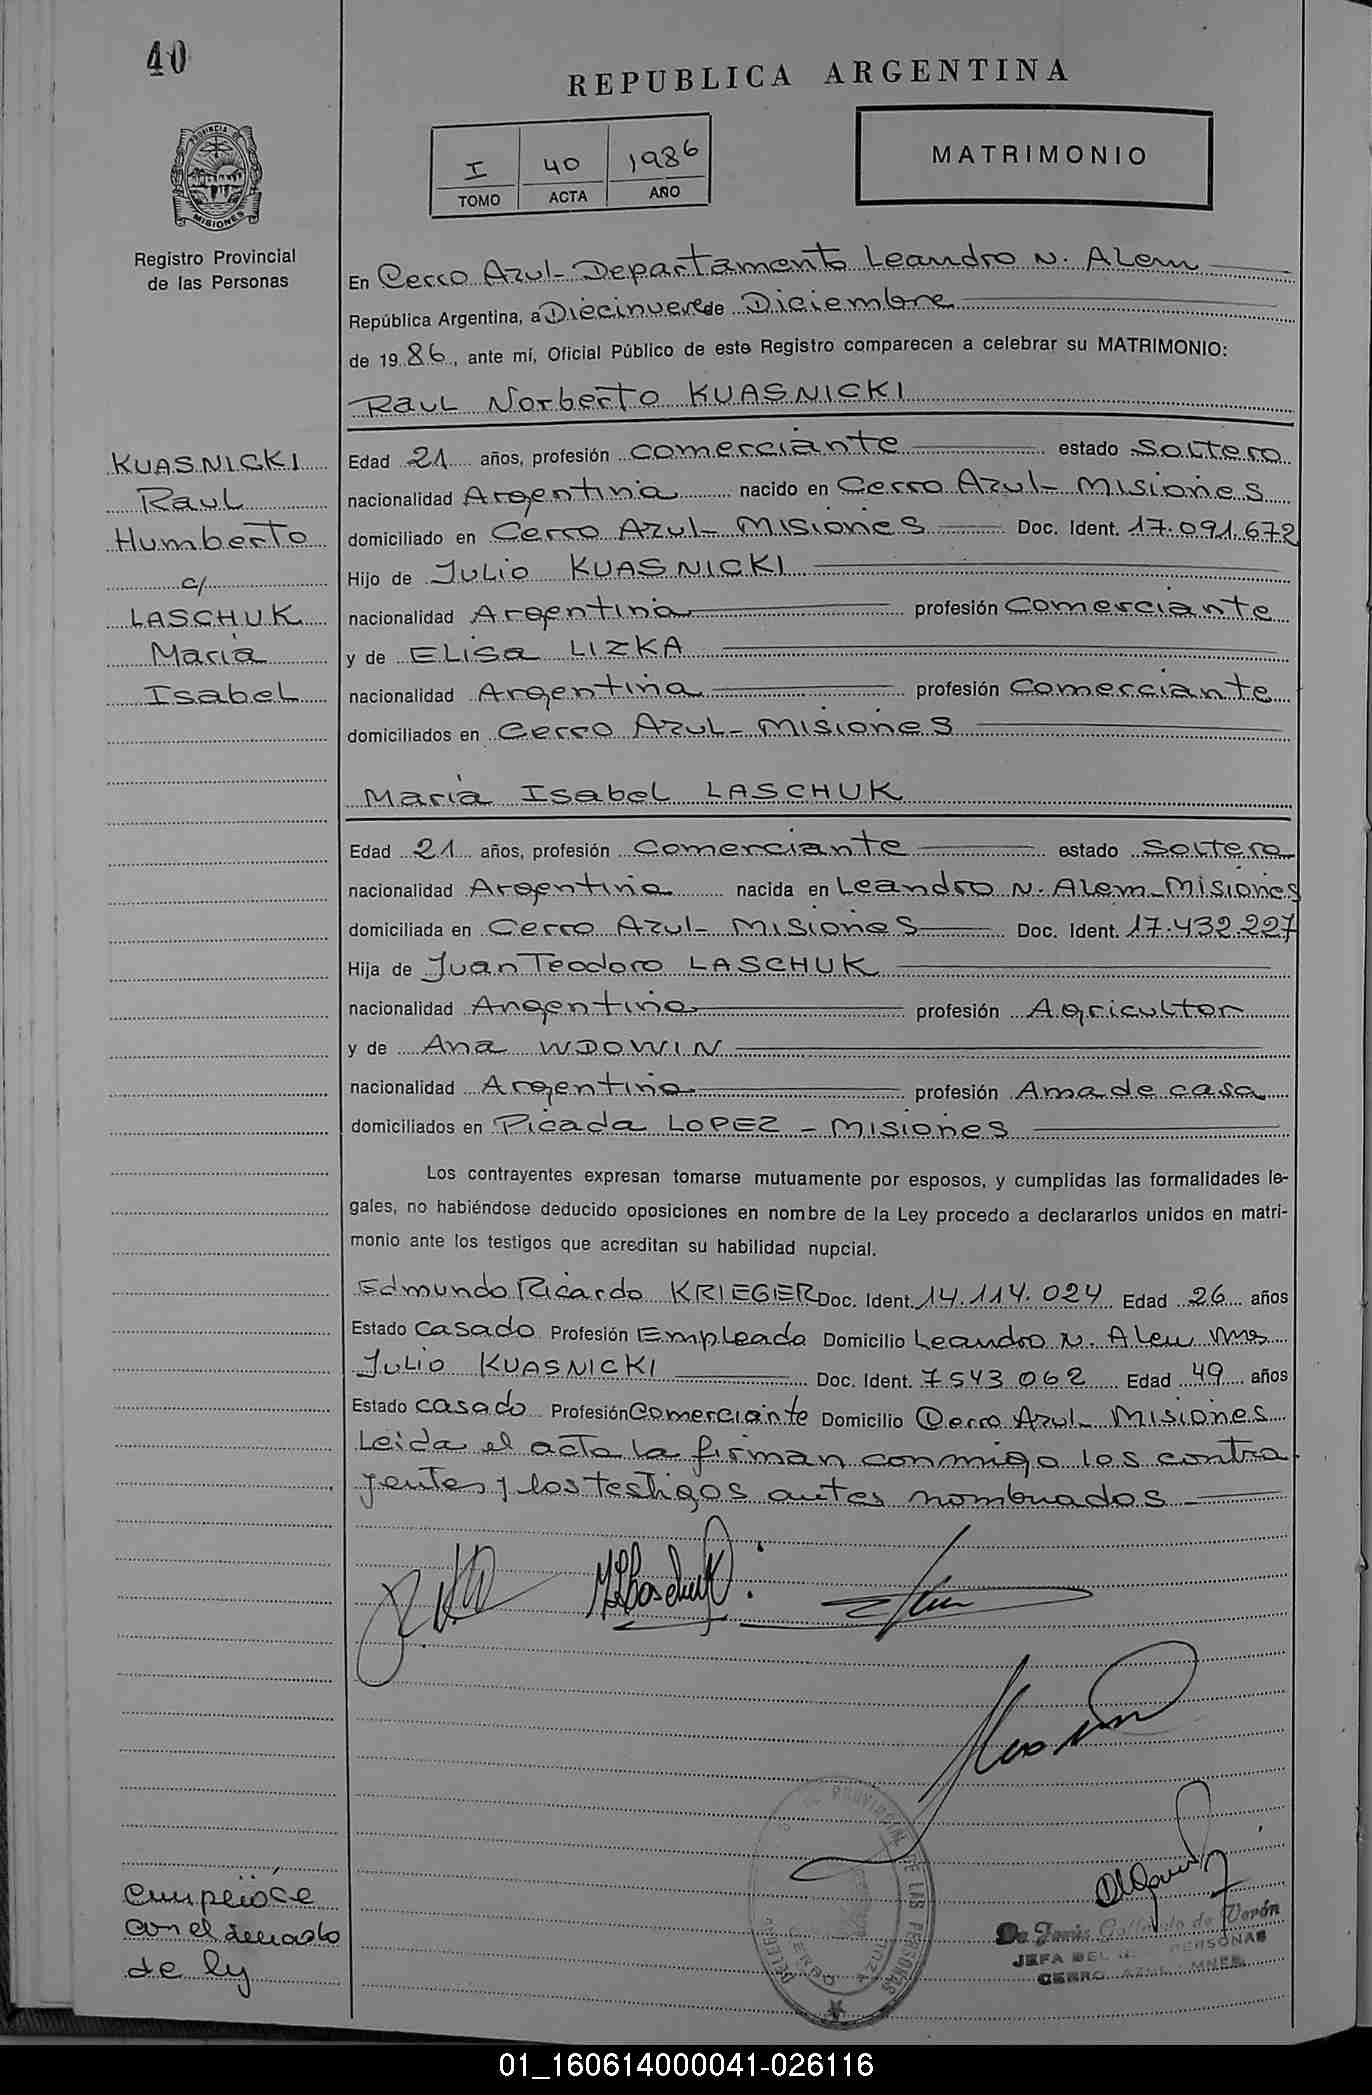 40
REPUBLICA ARGENTINA
I 40 1986
TOMO ACTA AÑO
MATRIMONIO
PROVINCIA DE MISIONES
Registro Provincial
de las Personas
En Cerro Azul- Departamento Leandro N. Alem
República Argentina, a Diecinueve de Diciembre
de 19 86, ante mí, Oficial Público de este Registro comparecen a celebrar su MATRIMONIO:
Raul Norberto KUASNICKI
KUASNICKI
Raul
Humberto
c/
LASCHUK
Maria
Isabel
Edad 21 años, profesión comerciante estado Soltero
nacionalidad Argentina nacido en Cerro Azul- Misiones
domiciliado en Cerro Azul- Misiones Doc. Ident. 17.091.672
Hijo de Julio KUASNICKI
nacionalidad Argentina profesión Comerciante
y de Elisa LIZKA
nacionalidad Argentina profesión Comerciante
domiciliados en Cerro Azul- Misiones
Maria Isabel LASCHUK
Edad 21 años, profesión Comerciante estado Soltera
nacionalidad Argentina nacida en Leandro N. Alem- Misiones
domiciliada en Cerro Azul- Misiones Doc. Ident. 17.432.227
Hija de Juan Teodoro LASCHUK
nacionalidad Argentina profesión Agricultor
y de Ana WDOWIN
nacionalidad Argentina profesión Ama de casa
domiciliados en Picada LOPEZ - Misiones
Los contrayentes expresan tomarse mutuamente por esposos, y cumplidas las formalidades le-
gales, no habiéndose deducido oposiciones en nombre de la Ley procedo a declararlos unidos en matri-
monio ante los testigos que acreditan su habilidad nupcial.
Edmundo Ricardo KRIEGER Doc. Ident. 14.114.024 Edad 26 años
Estado Casado Profesión Empleado Domicilio Leandro N. Alem Mns
Julio KUASNICKI Doc. Ident. 7543062 Edad 49 años
Estado casado Profesión Comerciante Domicilio Cerro Azul- Misiones
Leida el acta la firman conmigo los contra
yentes y los testigos antes nombrados
DE LAS PERSONAS
CERRO AZUL
de Verón
JEFA DEL PERSONAS
CERRO AZUL - MNES.
con el
de ley
01_160614000041-026116